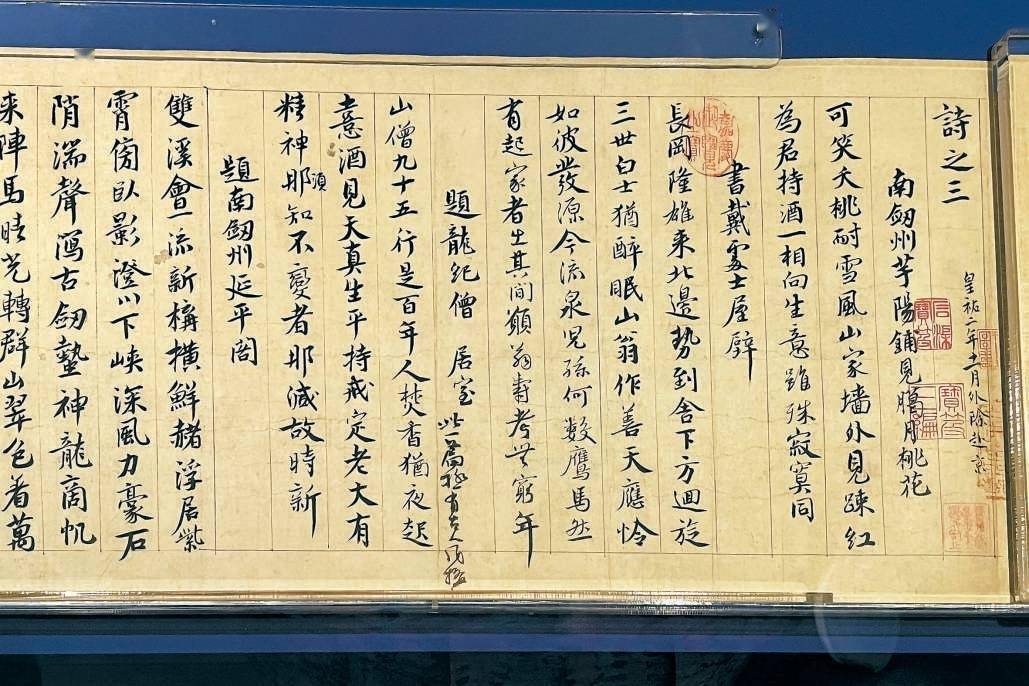 詩之三
皇祐二年十一月外除赴京
南劒州芋陽鋪見臘月桃花
可笑夭桃耐雪風山家墻外見疎紅
為君持酒一相向生意雖殊寂寞同
書戴處士屋壁
長岡隆雄来北邊勢到舍下方迴旋
三世白士猶醉眠山翁作善天應怜
如彼發源今流泉児孫何數鷹馬然
有起家者生其間願翁壽考無窮年
題龍紀僧居室 此一篇極有古人風格
山僧九十五行是百年人焚香猶夜起
憙酒見天真生平持戒定老大有
精神那須知不變者那減故時新
題南劒州延平閣
雙溪會一流新搆橫鮮赭浮居紫
霄傍臥影澄川下峽深風力豪石
陗湍聲瀉古劒蟄神龍商帆
来陣馬晴光轉群山翠色着萬
嘉慶御覽之寶